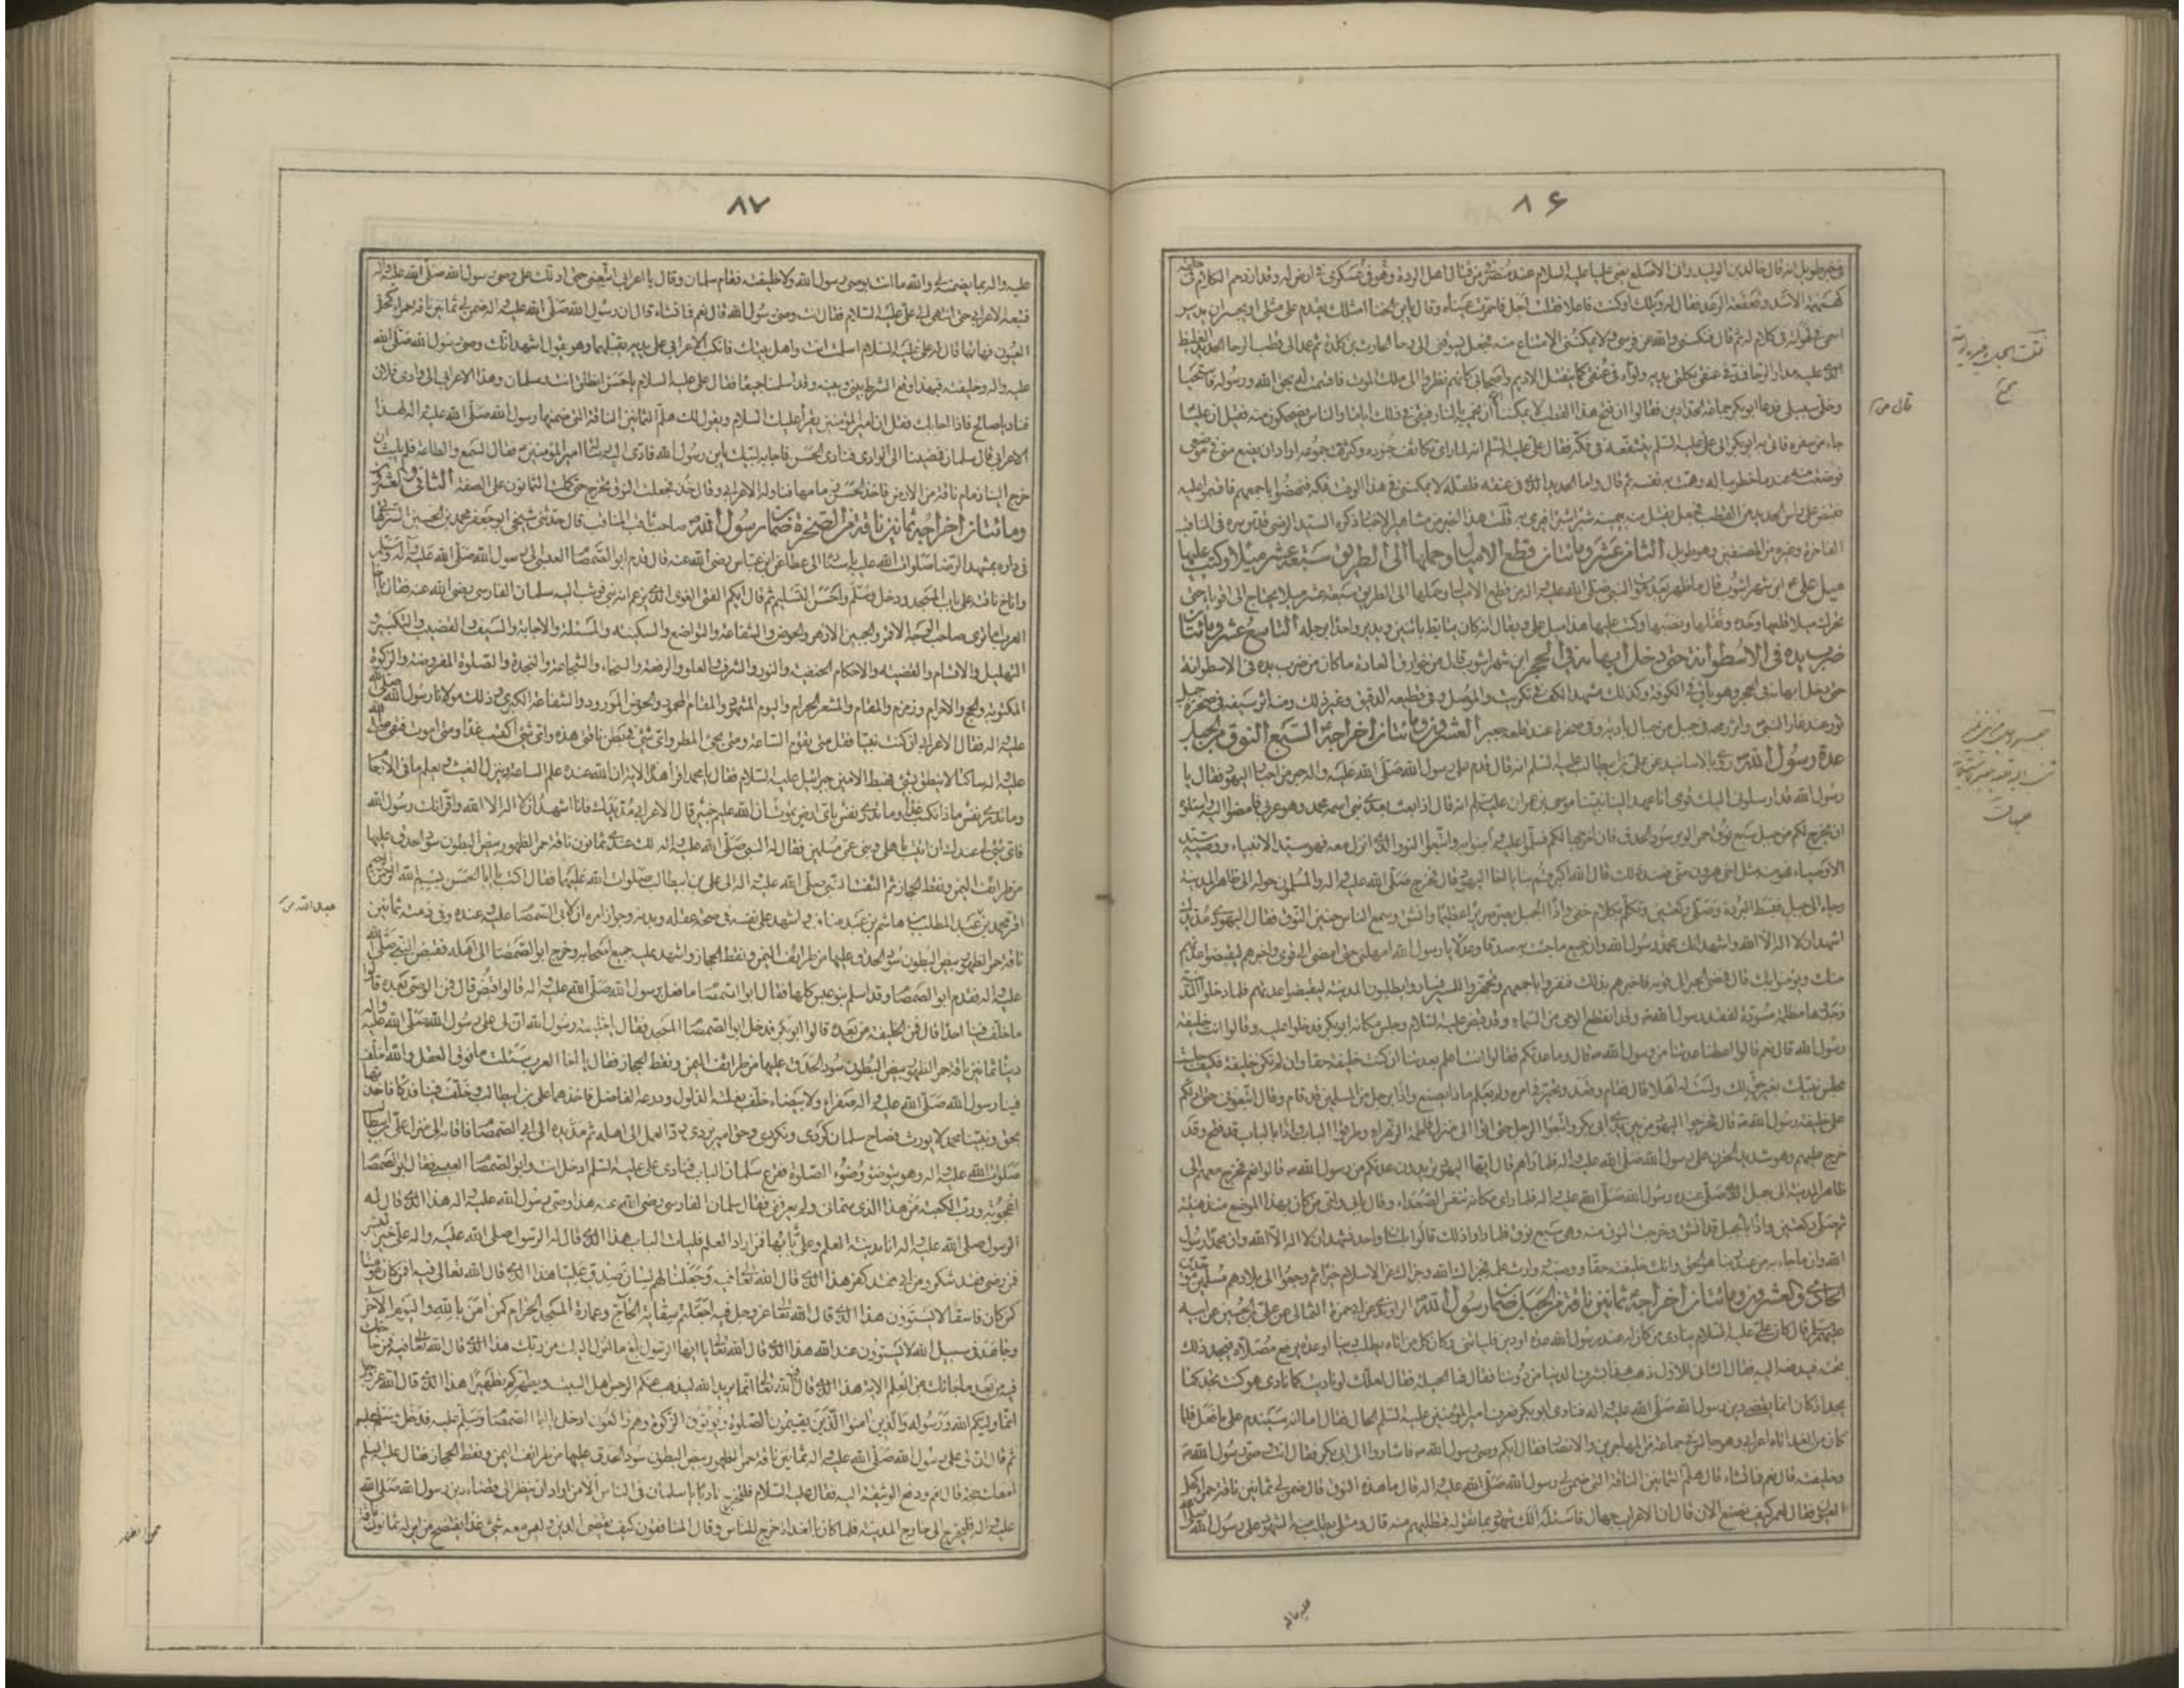 ٨۶
في خبر طويل انه قال خالد بن الوليد واتى الاصلع يعني عليا عليه السلام عند منصرفي من قتال اهل الردة وهو في عسكري في ارض له وقد ازدحم الكلام في حلقه
كهمهمة الاسد وقعقعة الرعد فقال له ويلك اوكنت فاعلا فقلت اجل فاحمرت عيناه وقال يابن اللخنا امثلك يقدم على مثلي او يجسر ان يدير
اسمي في لهواته في كلام له ثم قال فنكسني والله عن فرسي ولا يمكنني الامتناع منه فجعل يسوقني الى رحا للحارث بن كلدة ثم عمد الى قطب الرحا الحديد الغليظ
الذي عليه مدار الرحا فمده في عنقي بكلتي يديه ولواه في عنقي كما ينفتل الاديم واصحابي كانهم نظروا الى ملك الموت فاقسمت عليه بحق الله ورسوله فاستحيا
وخلى سبيلي فدعا ابوبكر جماعة الحدادين فقالوا ان فتح هذا القطب لا يمكننا الا ان نحميه بالنار فبقي في ذلك اياما والناس يضحكون منه فقيل ان عليا
جاء من سفره فاتى به ابوبكر الى علي عليه السلم يشفعه في فكه فقال علي عليه السلم انه لما راى تكاثف جنوده وكثرة جموعه اراد ان يضع مني في موضعي
فوضعت منه عندما خطر بباله وهمت به نفسه ثم قال واما الحديد الذي في عنقه فلعله لا يمكنني في هذا الوقت فكه فنهضوا باجمعهم فاقسموا عليه
فقبض على راس الحديد من القطب فجعل يفتل منه بيمينه شبرا شبرا فيرمي به قلت هذا الخبر من مشاهير الاخبار ذكره السيد الرضي قدس سره في المناقب
الفاخرة وغيره من المصنفين وهو طويل الثامن عشر ومائتان قطع الاميال وحملها الى الطريق سبعة عشر ميلا وكتب عليها
ميل علي ع ابن شهراشوب قال ما ظهر بعد النبي صلى الله عليه واله من قطع الاميال وحملها الى الطريق سبعة عشر ميلا يحتاج الى اقوياء حتى
تحرك ميلا قلعها وحده ونقلها ونصبها وكتب عليها هذا ميل علي ويقال انه كان يتابط باثنين ويدير واحدا برجله التاسع عشر ومائتان
ضرب يده في الاسطوانة حتى دخل ابهامه في الحجر ابن شهراشوب قال من خوارق العادة ما كان من ضرب يده في الاسطوانة
حتى دخل ابهامه في الحجر وهو باق في الكوفة وكذلك مشهد الكف في تكريت والموصل وفي قطيعة الدقيق وغير ذلك ومنه اثر سيفه في صخرة جبل
ثور عند غار النبي واثر رمحه في جبل من جبال البادية وفي صخرة عند قلعة خيبر العشرون ومائتان اخراجه السبع النوق من الجبل
عدة رسول الله ص روي بالاسانيد عن علي بن ابيطالب عليه السلم انه قال قدم على رسول الله صلى الله عليه واله حبر من احبار اليهود فقال يا
رسول الله قد ارسلوني اليك قومي انا عهد الينا نبينا موسى بن عمران عليه السلم انه قال اذا بعث بعدي نبي اسمه محمد وهو عربي فامضوا اليه واسئلوه
ان يخرج لكم من جبل سبع نوق حمر الوبر سود الحدق فان اخرجها لكم فسلموا عليه وامنوا به واتبعوا النور الذي انزل معه فهو سيد الانبياء ووصيه سيد
الاوصياء فهو منه مثل اخي هرون مني فعند ذلك قال الله اكبر قم بنا يا اخا اليهود قال فخرج صلى الله عليه واله والمسلمون حوله الى ظاهر المدينة
وجاء الى جبل فبسط البردة وصلى ركعتين وتكلم بكلام خفي واذا الجبل يصر صريرا عظيما وانشق وسمع الناس حنين النوق فقال اليهودي مد يدك
اشهد ان لا اله الا الله واشهد انك محمد رسول الله وان جميع ما جئت به صدق وعدل يا رسول الله امهلني حتى امضي الى قومي واخبرهم ليقضوا عدتهم
منك ويؤمنوا بك قال فمضى الحبر الى قومه فاخبرهم بذلك فنفروا باجمعهم وتجهزوا للمسير وساروا يطلبون المدينة ليقضوا عدتهم فلما دخلوا المدينة
وجدوها مظلمة مسودة لفقد رسول الله ص وقد انقطع الوحي من السماء وقد قبض عليه السلام وجلس مكانه ابوبكر فدخلوا عليه وقالوا انت خليفة
رسول الله قال نعم قالوا اعطنا عدتنا من رسول الله ص قال وما عدتكم فقالوا انت اعلم بعدتنا ان كنت خليفة حقا وان لم تكن خليفة فكيف جلست
مجلس نبيك بغير حق لك ولست له اهلا قال فقام وقعد وتحير في امره ولم يعلم ماذا يصنع واذا برجل من المسلمين قد قام وقال اتبعوني حتى ادلكم
على خليفة رسول الله ص قال فخرجوا اليهود من بين يدي ابي بكر واتبعوا الرجل حتى اتوا الى منزل فاطمة الزهراء وطرقوا الباب واذا بالباب قد فتح وقد
خرج عليهم وهو شديد الحزن على رسول الله صلى الله عليه واله فلما راهم قال ايها اليهود تريدون عدتكم من رسول الله ص قالوا نعم فخرج معهم الى
ظاهر المدينة الى جبل الذي صلى عنده رسول الله صلى الله عليه واله فلما راى مكانه تنفس الصعداء وقال بابي وامي من كان بهذا الموضع منذ هنيئة
ثم صلى ركعتين واذا بالجبل قد انشق وخرجت النوق منه وهي سبع نوق فلما راوا ذلك قالوا بلسان واحد نشهد ان لا اله الا الله وان محمدا رسول
الله وان ما جاء به من عند ربنا هو الحق وانك خليفته حقا ووصيه ووارث علمه فجزاك الله وجزاك عن الاسلام خيرا ثم رجعوا الى بلادهم مسلمين موحدين
الحادي والعشرون ومائتان اخراجه ثمانين ناقة من الجبل ضمان رسول الله ص الراوندي عن ابي حمزة الثمالي عن علي بن الحسين عن ابيه
عليهم السلم قال كان علي عليه السلام ينادي من كان له عند رسول الله عدة او دين فليأتني وكان كل من اتاه يطلب دينا او عدة يرفع مصلاه فيجد ذلك
تحته فيدفعه اليه فقال الثاني للاول ذهب هذا بشرف الدنيا من دوننا فقال فما الحيلة فقال لعلك لو ناديت كما نادى هو كنت تجد كما
يجد اذ كان انما يقضي عن رسول الله صلى الله عليه واله فنادى ابوبكر فعرف امير المؤمنين عليه السلم الحال فقال اما انه سيندم على ما فعل فلما
كان من الغد اتاه اعرابي وهو جالس في جماعة من المهاجرين والانصار فقال ايكم وصي رسول الله ص فاشاروا الى ابي بكر فقال انت وصي رسول الله ص
وخليفته قال نعم فما تشاء قال فهلم الثمانين الناقة التي ضمن لي رسول الله صلى الله عليه واله قال ما هذه النوق قال ضمن لي ثمانين ناقة حمراء كحل
العيون فقال لعمر كيف نصنع الان قال ان الاعراب جهال فاسئله الك شهود بما تقوله فتطلبهم منه قال ومثلي يطلب منه الشهود على رسول الله صلى الله
قال
٨٧
عليه واله بما يضمن لي والله ما انت بوصي رسول الله ولا خليفته فقام سلمان وقال يا اعرابي اتبعني حتى ادلك على وصي رسول الله صلى الله عليه واله
فتبعه الاعرابي حتى انتهى الى علي عليه السلام فقال انت وصي رسول الله قال نعم فما تشاء قال ان رسول الله صلى الله عليه واله ضمن لي ثمانين ناقة حمراء كحل
العيون فهاتها قال له علي عليه السلام اسلمت انت واهل بيتك فانكب الاعرابي على يديه يقبلهما وهو يقول اشهد انك وصي رسول الله صلى الله
عليه واله وخليفته فبهذا وقع الشرط بيني وبينه وقد اسلمنا جميعا فقال علي عليه السلام يا حسن انطلق انت وسلمان وهذا الاعرابي الى وادي فلان
فناد يا صالح فاذا اجابك فقل ان امير المؤمنين يقرأ عليك السلام ويقول لك هلم الثمانين الناقة التي ضمنها رسول الله صلى الله عليه واله لهذا
الاعرابي قال سلمان فمضينا الى الوادي فنادى الحسن فاجابه لبيك يابن رسول الله فادى اليه رسالة امير المؤمنين ع فقال السمع والطاعة فلم يلبث ان
خرج الينا زمام ناقة من الارض فاخذ الحسن زمامها فناوله الاعرابي وقال خذ فجعلت النوق تخرج حتى كملت الثمانون على الصفة الثاني والعشرون
ومائتان اخراجه ثمانين ناقة من الصخرة ضمان رسول الله ص صاحب ثاقب المناقب قال حدثني شيخي ابو جعفر محمد بن الحسين الشوهاني
في داره بمشهد الرضا صلوات الله عليه باسناده الى عطا عن ابن عباس رضي الله عنه قال قدم ابو الصمصام العبسي الى رسول الله صلى الله عليه وآله وسلم
واناخ ناقته على باب المسجد ودخل وسلم واحسن التسليم ثم قال ايكم الفتى الغوي الذي يزعم انه نبي فوثب اليه سلمان الفارسي رضي الله عنه فقال يا اخا
العرب اما ترى صاحب الوجه الاقمر والجبين الازهر والحوض والشفاعة والتواضع والسكينة والمسئلة والاجابة والسيف والقضيب والتكبير و
التهليل والاقسام والقضية والاحكام الحنفية والنور والشرف والعلو والرفعة والسخاء والشجاعة والنجدة والصلوة المفروضة والزكوة
المكتوبة والحج والاحرام وزمزم والمقام والمشعر الحرام واليوم المشهود والمقام المحمود والحوض المورود والشفاعة الكبرى ذلك مولانا رسول الله صلى الله
عليه واله فقال الاعرابي ان كنت نبيا فقل متى تقوم الساعة ومتى يجئ المطر واي شئ في بطن ناقتي هذه واي شئ اكتسب غدا ومتى اموت فبقي صلى الله
عليه واله ساكتا لا ينطق بشئ فهبط الامين جبرائيل عليه السلام فقال يا محمد اقرأ هذه الاية ان الله عنده علم الساعة وينزل الغيث ويعلم ما في الارحام
وما تدري نفس ماذا تكسب غدا وما تدري نفس باي ارض تموت ان الله عليم خبير قال الاعرابي مد يدك فانا اشهد ان لا اله الا الله واقر انك رسول الله
فاي شئ لي عندك ان اتيتك باهلي وبني عمي مسلمين فقال له النبي صلى الله عليه واله لك عندي ثمانون ناقة حمر الظهور بيض البطون سود الحدق عليها
من طرائف اليمن ونقط الحجاز ثم التفت النبي صلى الله عليه واله الى علي بن ابيطالب صلوات الله عليهما فقال اكتب يا ابا الحسن بسم الله الرحمن الرحيم
اقر محمد بن عبد المطلب بن هاشم بن عبد مناف واشهد على نفسه في صحة عقله وبدنه وجواز امره ان لابي الصمصام عليه وعنده وفي ذمته ثمانين
ناقة حمر الظهور بيض البطون سود الحدق عليها من طرائف اليمن ونقط الحجاز واشهد عليه جميع اصحابه وخرج ابو الصمصام الى اهله فقبض النبي صلى الله
عليه واله فقدم ابو الصمصام وقد اسلم بنو عبس كلها فقال ابو الصمصام ما فعل رسول الله صلى الله عليه واله قالوا قبض قال فمن الوصي بعده قالوا
ما خلف فينا احدا قال فمن الخليفة من بعده قالوا ابو بكر فدخل ابو الصمصام المسجد فقال يا خليفة رسول الله ان لي على رسول الله صلى الله عليه واله
دينا ثمانين ناقة حمر الظهور بيض البطون سود الحدق عليها من طرائف اليمن ونقط الحجاز فقال يا اخا العرب سئلت ما فوق العقل والله ما خلف
فينا رسول الله صلى الله عليه واله صفراء ولا بيضاء خلف بغلته الدلول ودرعه الفاضل فاخذهما علي بن ابيطالب وخلف فينا فدكا فاخذتها
بحق ونبينا محمد لا يورث فصاح سلمان كردي ونكردي وحق امير ببردي رد العمل الى اهله ثم مد يده الى ابي الصمصام فاقامه الى منزل علي بن ابيطالب
صلوات الله عليه واله وهو يتوضؤ وضوء الصلوة فقرع سلمان الباب فنادى علي عليه السلم ادخل انت وابو الصمصام العبسي فقال ابو الصمصام
اعجوبة ورب الكعبة من هذا الذي سماني ولم يعرفني فقال سلمان الفارسي رضي الله عنه هذا وصي رسول الله عليه واله هذا الذي قال له
الرسول صلى الله عليه واله انا مدينة العلم وعلي بابها فمن اراد العلم فليات الباب هذا الذي قال له الرسول صلى الله عليه واله علي خير البشر
فمن رضي فقد شكر ومن ابى فقد كفر هذا الذي قال الله تعالى فيه وجعلنا لهم لسان صدق عليا هذا الذي قال الله تعالى فيه افمن كان مؤمنا
كمن كان فاسقا لا يستوون هذا الذي قال الله تعالى عز وجل فيه اجعلتم سقاية الحاج وعمارة المسجد الحرام كمن امن بالله واليوم الآخر
وجاهد في سبيل الله لا يستوون عند الله هذا الذي قال الله تعالى يا ايها الرسول بلغ ما انزل اليك من ربك هذا الذي قال الله تعالى فيه فمن حاجك
فيه من بعد ما جائك من العلم الاية هذا الذي قال الله تعالى انما يريد الله ليذهب عنكم الرجس اهل البيت ويطهركم تطهيرا هذا الذي قال الله عز وجل
انما وليكم الله ورسوله والذين امنوا الذين يقيمون الصلوة ويؤتون الزكوة وهم راكعون ادخل يا ابا الصمصام وسلم عليه فدخل وسلم عليه
ثم قال ان لي على رسول الله صلى الله عليه واله ثمانين ناقة حمر الظهور بيض البطون سود الحدق عليها من طرائف اليمن ونقط الحجاز فقال عليه السلم
امعك حجة قال نعم ودفع الوثيقة اليه فقال عليه السلام ناد يا سلمان في الناس الا من اراد ان ينظر الى قضاء دين رسول الله صلى الله
عليه واله فليخرج الى خارج المدينة فلما كان بالغداة خرج الناس وقال المنافقون كيف يقضي الدين وليس معه شئ غدا يفتضح من اين له ثمانون ناقة
عبد الله